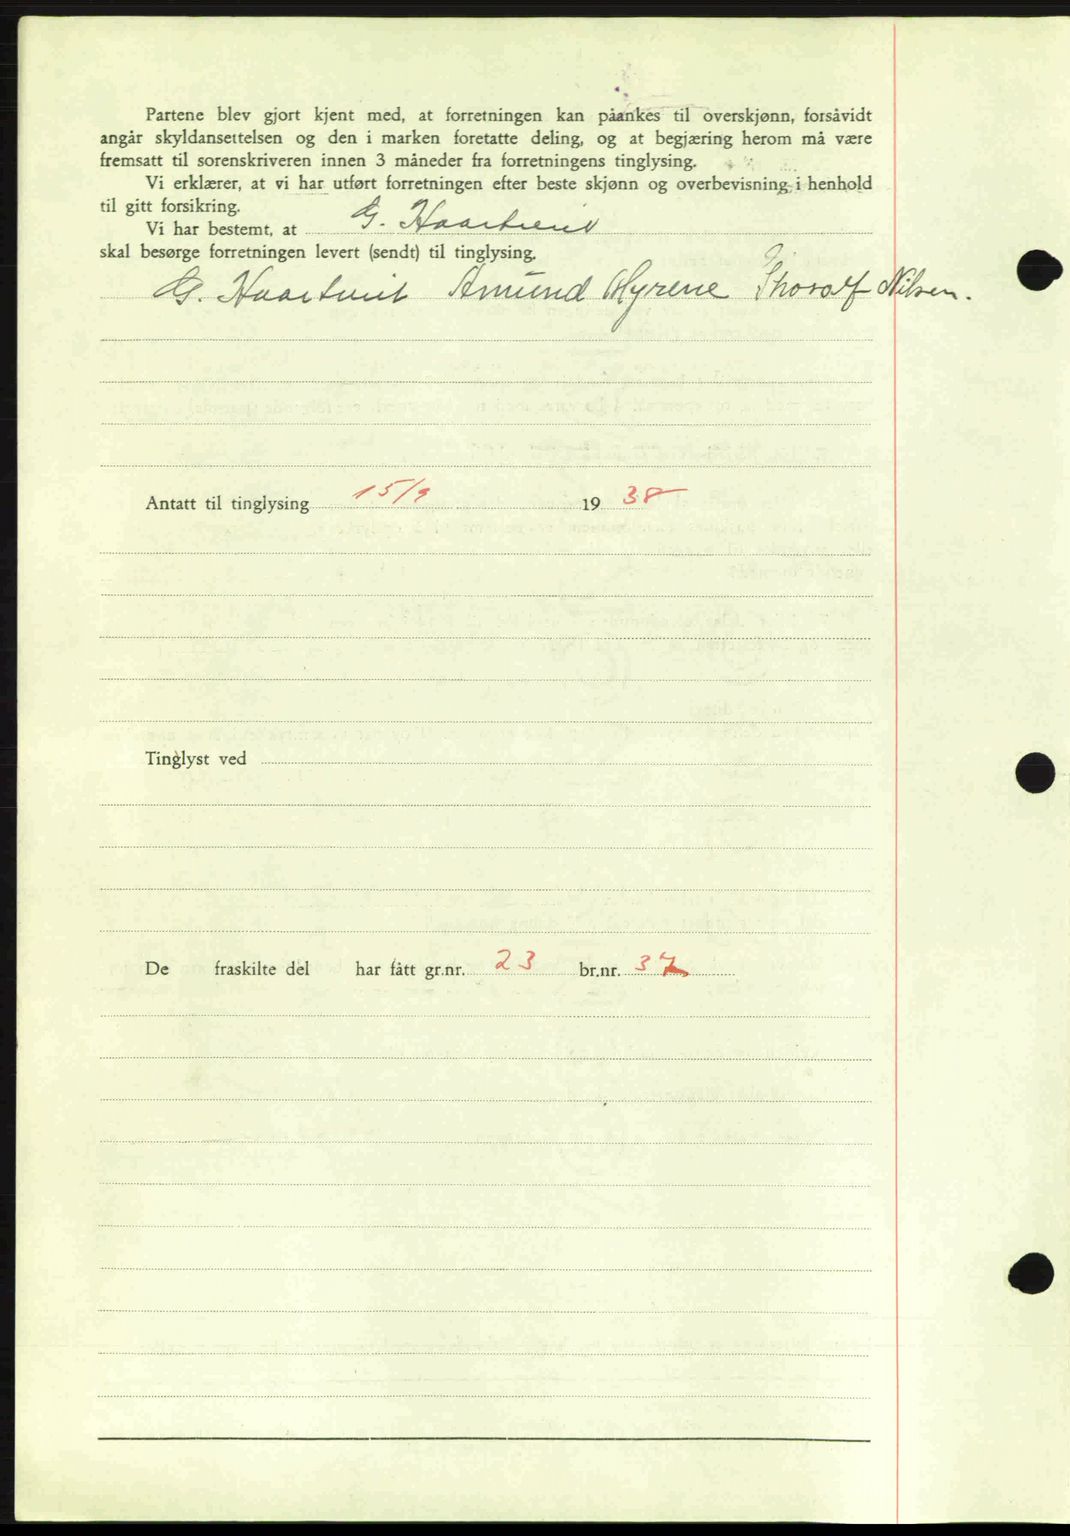 Partene blev gjort kjent med, at forretningen kan påankes til overskjønn, forsåvidt
angår skyldansettelsen og den i marken foretatte deling, og at begjæring herom må være
fremsatt til sorenskriveren innen 3 måneder fra forretningens tinglysing.
Vi erklærer, at vi har utført forretningen efter beste skjønn og overbevisning i henhold
til gitt forsikring.
Vi har bestemt, at G. Haartveit
skal besørge forretningen levert (sendt) til tinglysing.
G. Haartveit Amund Myrene Thoralf Nilsen.
Antatt til tinglysing 15/9 1938
Tinglyst ved
De fraskilte del har fått gr.nr. 23 br.nr. 37